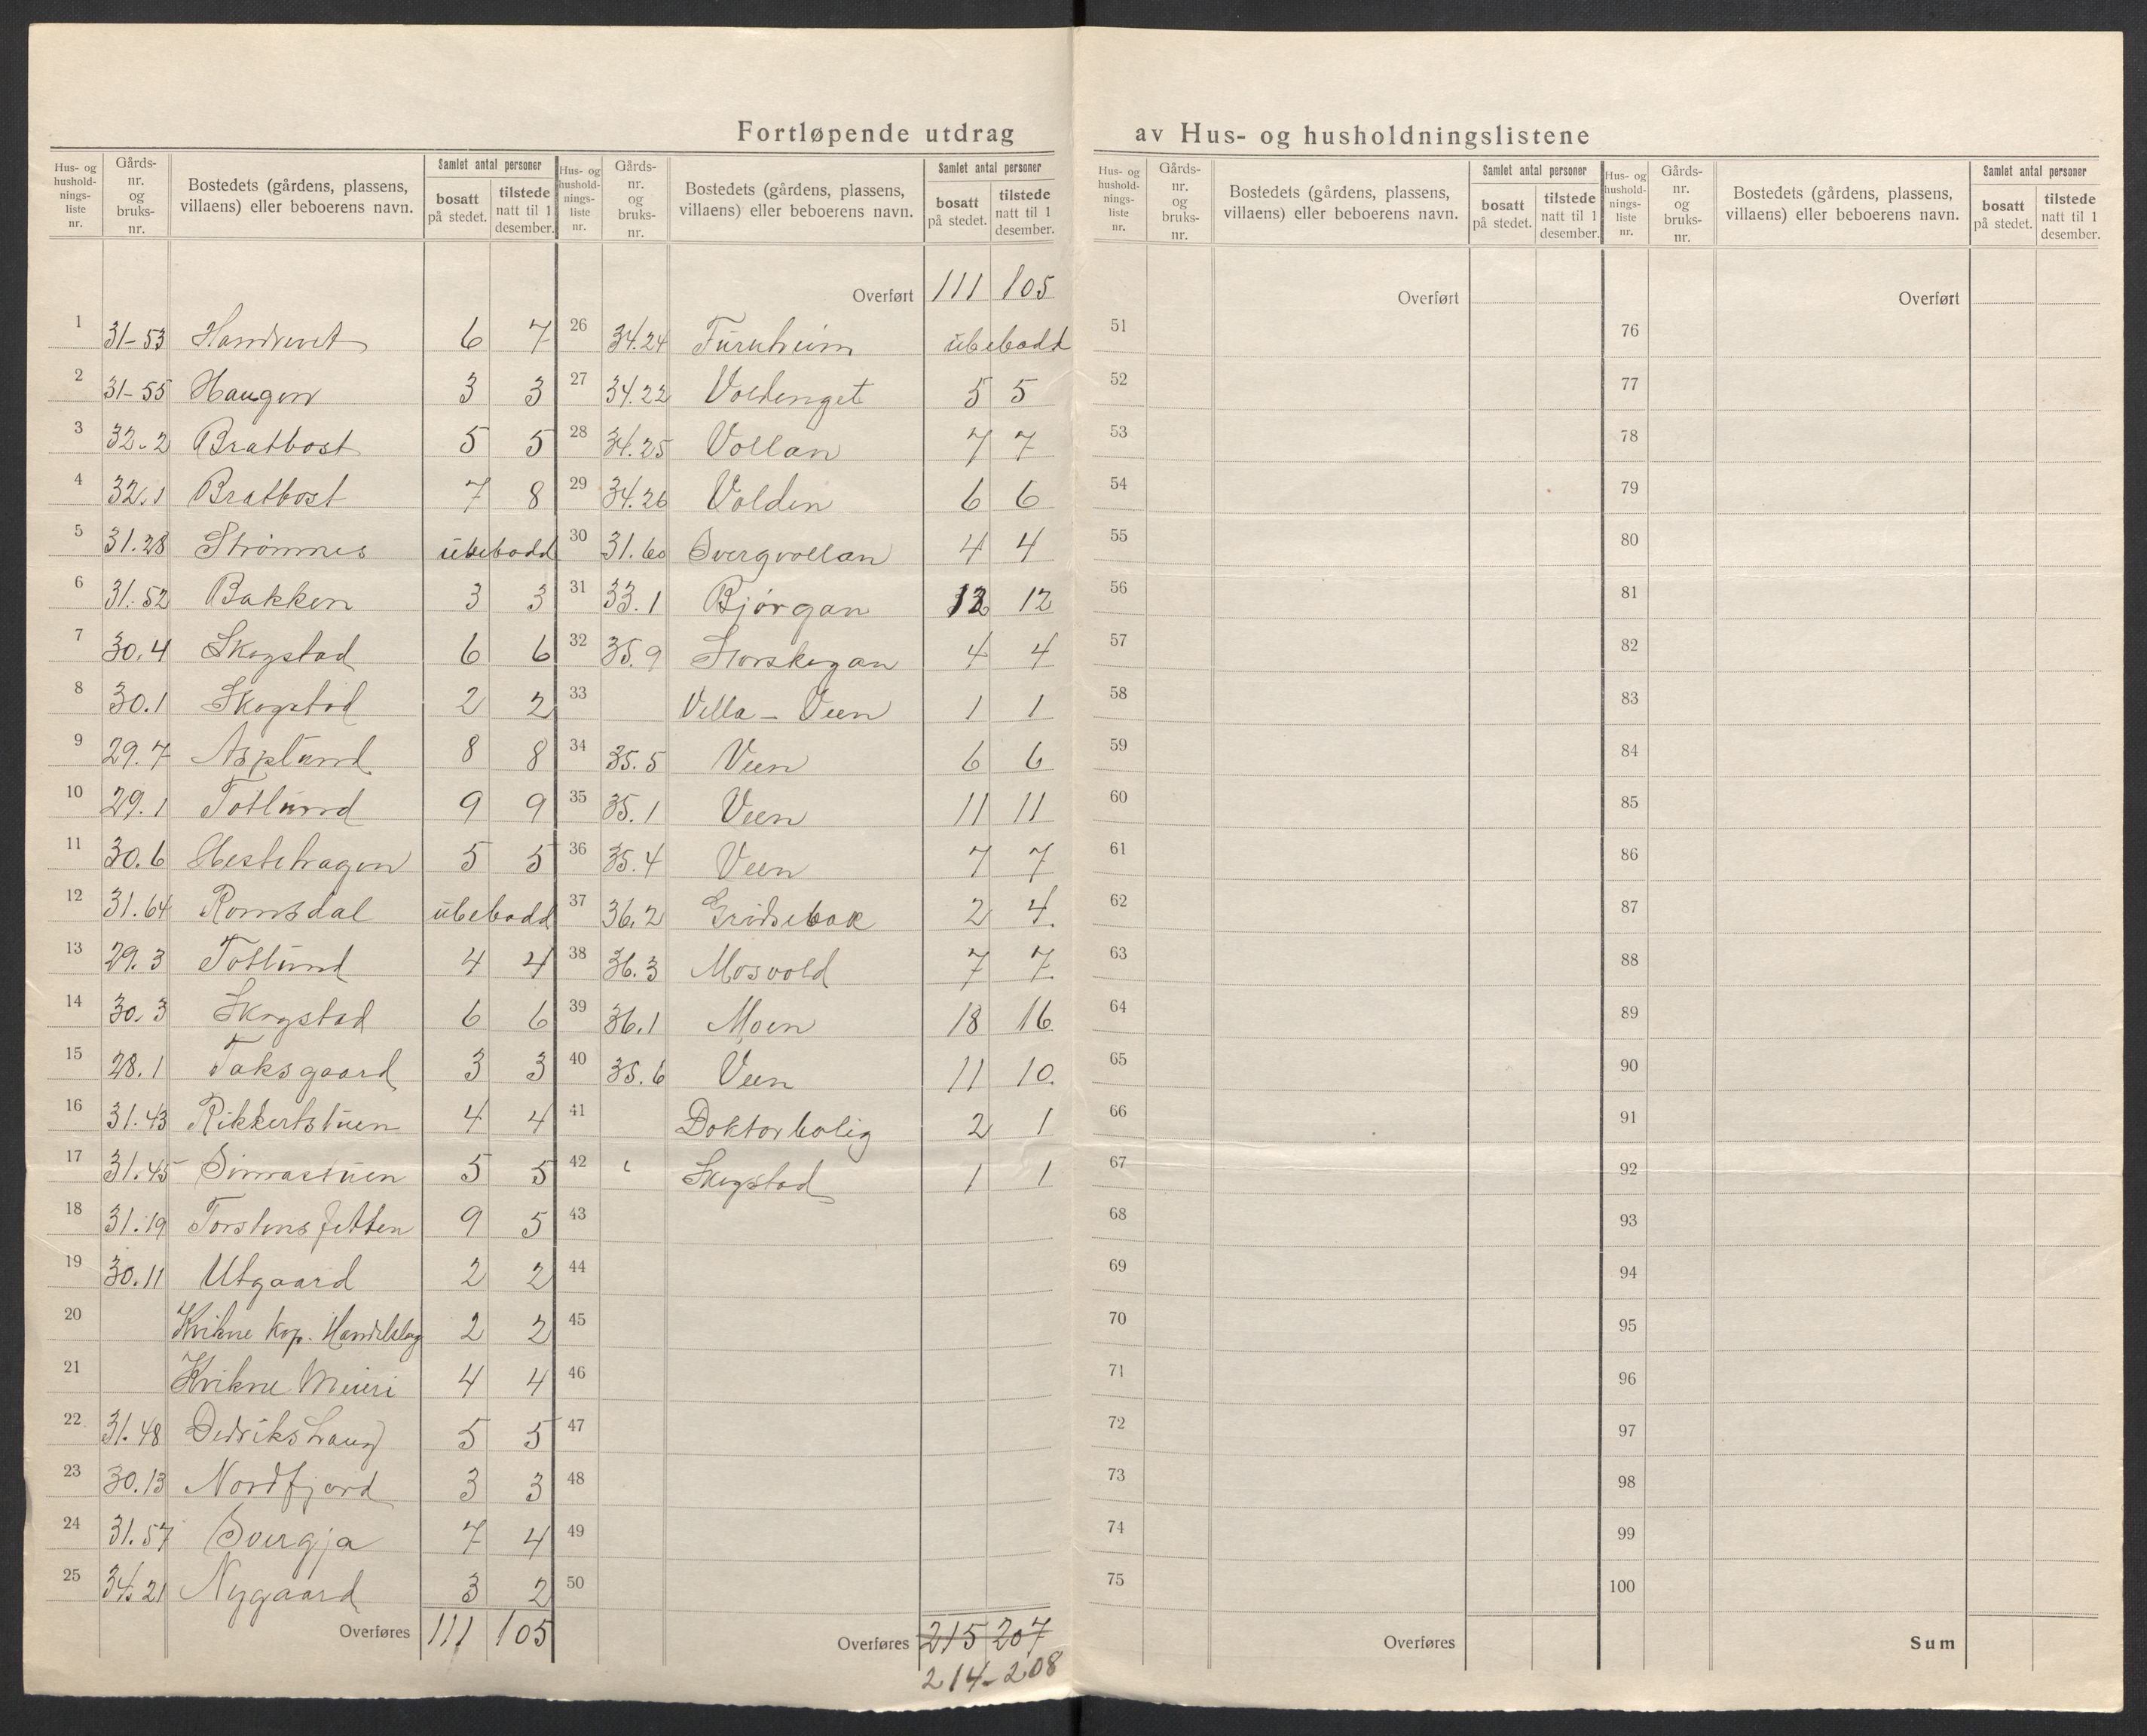 Fortløpende utdrag av Hus- og husholdningslistene
Hus- og husholdnings-liste nr. | Gårds-nr. og bruks-nr. | Bostedets (gårdens, plassens, villaens) eller beboerens navn. | Samlet antal personer | bosatt på stedet. | tilstede natt til 1 desember.
1 31-53 Handveret 6 7
2 31-55 Haugen 3 3
3 32-2 Bratbost 5 5
4 32.1 Bratbost 7 8
5 31.28 Strømnes ubebodd
6 31.52 Bakken 3 3
7 30.4 Skogstad 6 6
8 30.1 Skogstad 2 2
9 29.7 Asplund 8 8
10 29.1 Totlund 9 9
11 30.6 Hestehagen 5 5
12 31.64 Romsdal ubebodd
13 29.3 Totlund 4 4
14 30.3 Skogstad 6 6
15 28.1 Taksgaard 3 3
16 31.43 Rikkertstuen 4 4
17 31.45 5 5
18 31.19 Torstensfetten 9 5
19 30.11 Utgaard 2 2
20 Kvikne Kop. Handelslag 2 2
21 Kvikne Meieri 4 4
22 31.48 Dedrikshaug 5 5
23 30.13 Nordfjord 3 3
24 31.57 Svergja 7 4
25 34.21 Nygaard 3 2
Overføres 111 105
Hus- og husholdnings-liste nr. | Gårds-nr. og bruks-nr. | Bostedets (gårdens, plassens, villaens) eller beboerens navn. | Samlet antal personer | bosatt på stedet. | tilstede natt til 1 desember.
Overført 111 105
26 34.24 Furuheim ubebodd
27 34.22 Voldenget 5 5
28 34.25 Vollan 7 7
29 34.26 Volden 6 6
30 31.60 Svergvollan 4 4
31 33.1 Bjørgan 12 12
32 35.9 Storskogan 4 4
33 Villa - Veen 1 1
34 35.5 Veen 6 6
35 35.1 Veen 11 11
36 35.4 Veen 7 7
37 36.2 Grødsebak 2 4.
38 36.3 Mosvold 7 7.
39 36.1 Moen 18 16.
40 35.6 Veen 11 10.
41 Doktorbolig 2 1
42 Skogstad 1 1
43
44
45
46
47
48
49
50
Overføres 215 207
214-208
Hus- og husholdnings-liste nr. | Gårds-nr. og bruks-nr. | Bostedets (gårdens, plassens, villaens) eller beboerens navn. | Samlet antal personer | bosatt på stedet. | tilstede natt til 1 desember.
Overført
51
52
53
54
55
56
57
58
59
60
61
62
63
64
65
66
67
68
69
70
71
72
73
74
75
Overføres
Hus- og husholdnings-liste nr. | Gårds-nr. og bruks-nr. | Bostedets (gårdens, plassens, villaens) eller beboerens navn. | Samlet antal personer | bosatt på stedet. | tilstede natt til 1 desember.
Overført
76
77
78
79
80
81
82
83
84
85
86
87
88
89
90
91
92
93
94
95
96
97
98
99
100
Sum